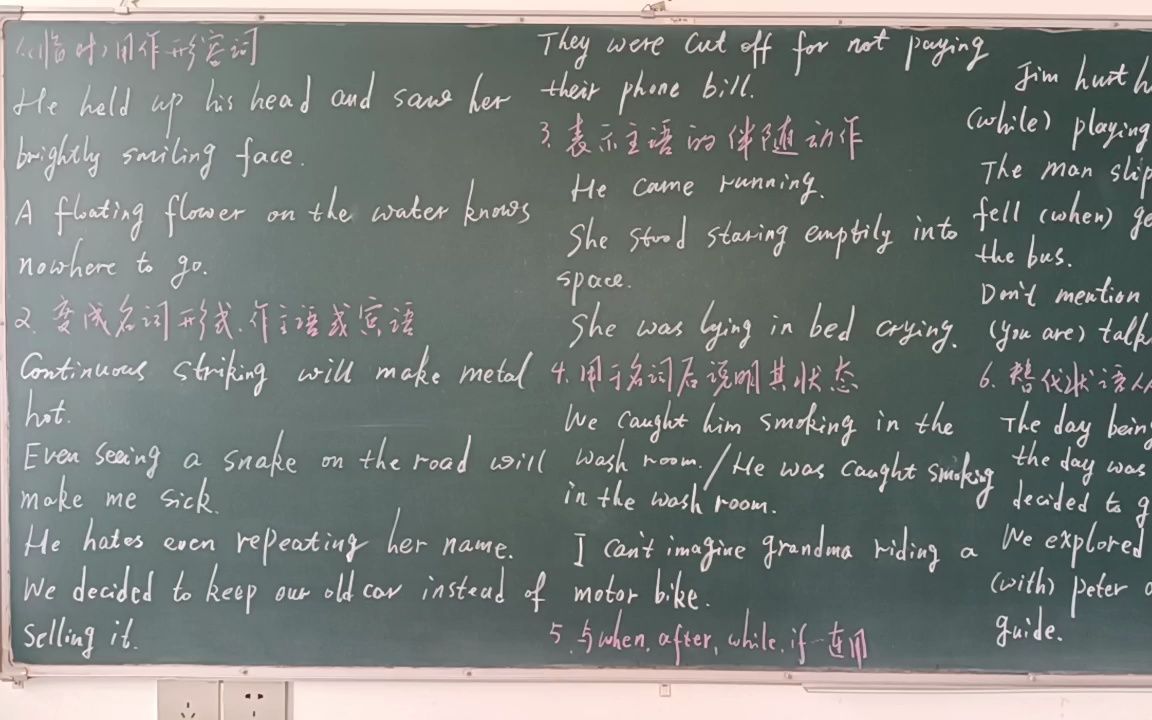 1.(临时)用作形容词
He held up his head and saw her
brightly smiling face.
A floating flower on the water knows
nowhere to go.
2. 变成名词形式.作主语或宾语
Continuous striking will make metal
hot.
Even seeing a snake on the road will
make me sick.
He hates even repeating her name.
We decided to keep our old car instead of
selling it.
They were cut off for not paying
their phone bill.
3. 表示主语的伴随动作
He came running.
She stood staring emptily into
space.
She was lying in bed crying.
4. 用于名词后说明其状态
We caught him smoking in the
wash room. / He was caught smoking
in the wash room.
I can't imagine grandma riding a
motor bike.
5. 与when, after, while, if 连用
Jim hurt h
(while) playing
The man slip
fell (when) ge
the bus.
Don't mention
(you are) talk
6. 替代状语从
The day being
the day was
decided to g
We explored
(with) peter a
guide.